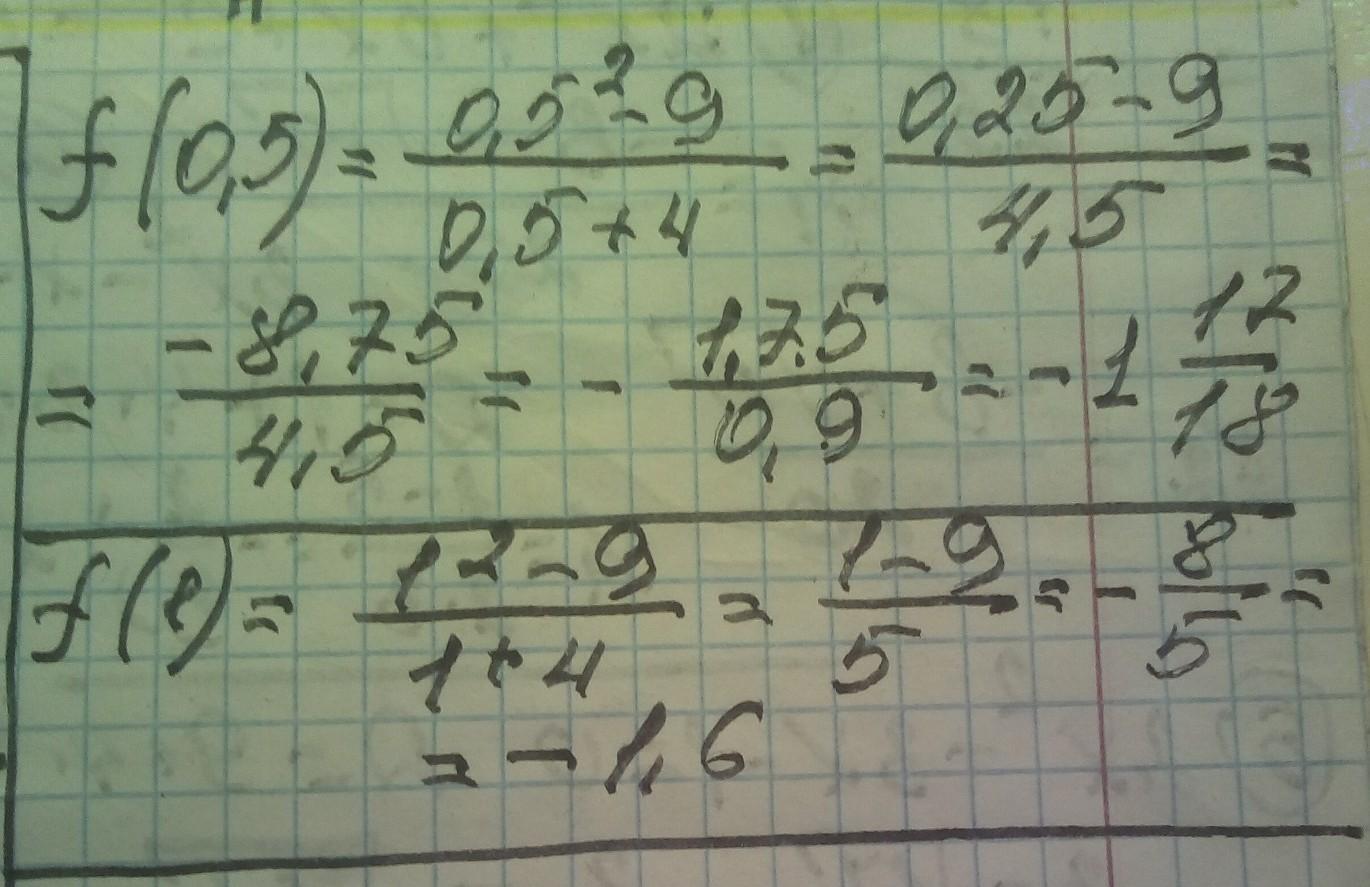 f(0,5) = (0,5² - 9)/(0,5 + 4) = (0,25 - 9)/4,5 =
= -8,75/4,5 = - 1,75/0,9 = - 1 17/18
f(1) = (1² - 9)/(1 + 4) = (1 - 9)/5 = - 8/5 =
= - 1,6